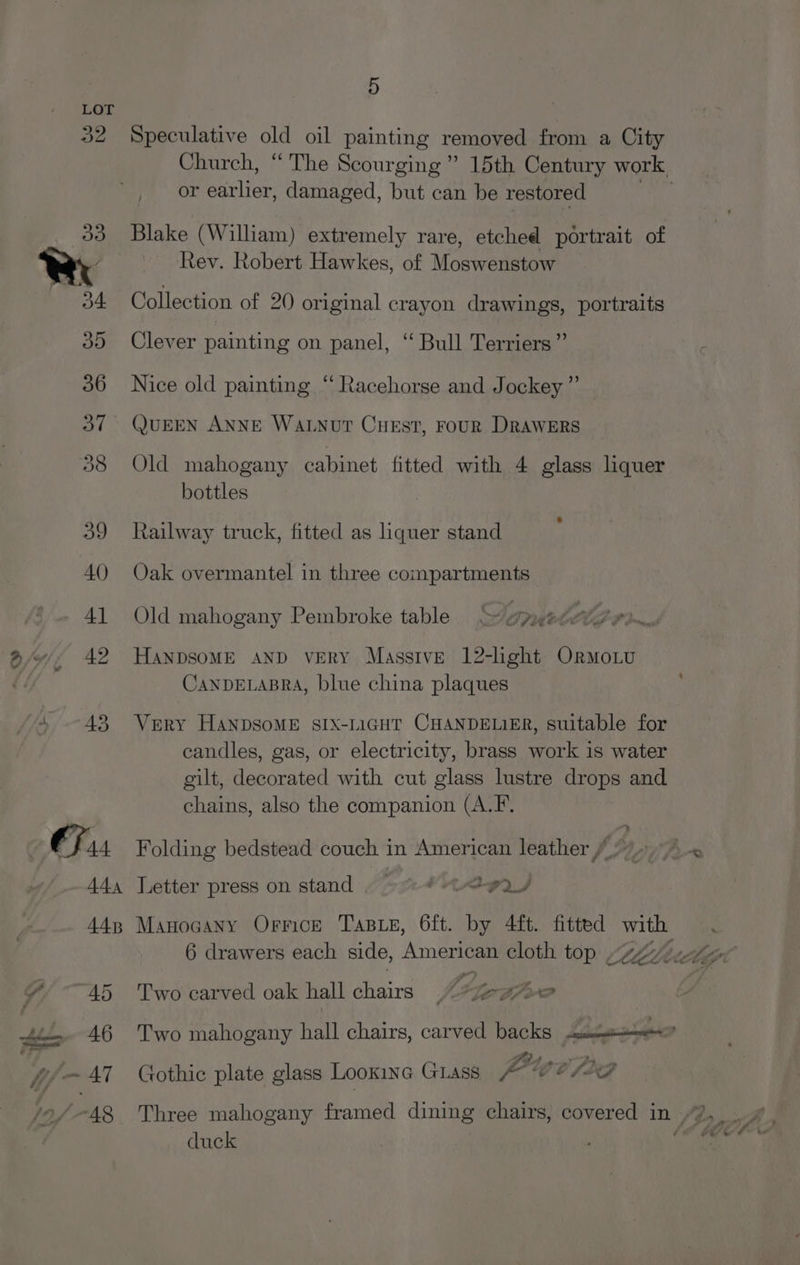 5
LOT
32 Speculative old oil painting removed from a City
Church, “The Scourging” 15th Century work
or earlier, damaged, but can be restored
33 Blake (William) extremely rare, etched portrait of
Rev. Robert Hawkes, of Moswenstow
34 Collection of 20 original crayon drawings, portraits
35 Clever painting on panel, “Bull Terriers”
36 Nice old painting “Racehorse and Jockey”
37 QUEEN ANNE WALNUT CHEST, FOUR DRAWERS
38 Old mahogany cabinet fitted with 4 glass liquer
bottles
39 Railway truck, fitted as liquer stand
40 Oak overmantel in three compartments
41 Old mahogany Pembroke table
42 HANDSOME AND VERY MASSIVE 12-light ORMOLU
CANDELABRA, blue china plaques
43 VERY HANDSOME SIX-LIGHT CHANDELIER, suitable for
candles, gas, or electricity, brass work is water
gilt, decorated with cut glass lustre drops and
chains, also the companion (A.F.
44 Folding bedstead couch in American leather
44A Letter press on stand
44B MAHOGANY OFFICE TABLE, 6ft. by 4ft. fitted with
6 drawers each side, American cloth top
45 Two carved oak hall chairs
46 Two mahogany hall chairs, carved backs
47 Gothic plate glass LOOKING GLASS
48 Three mahogany framed dining chairs, covered in
duck